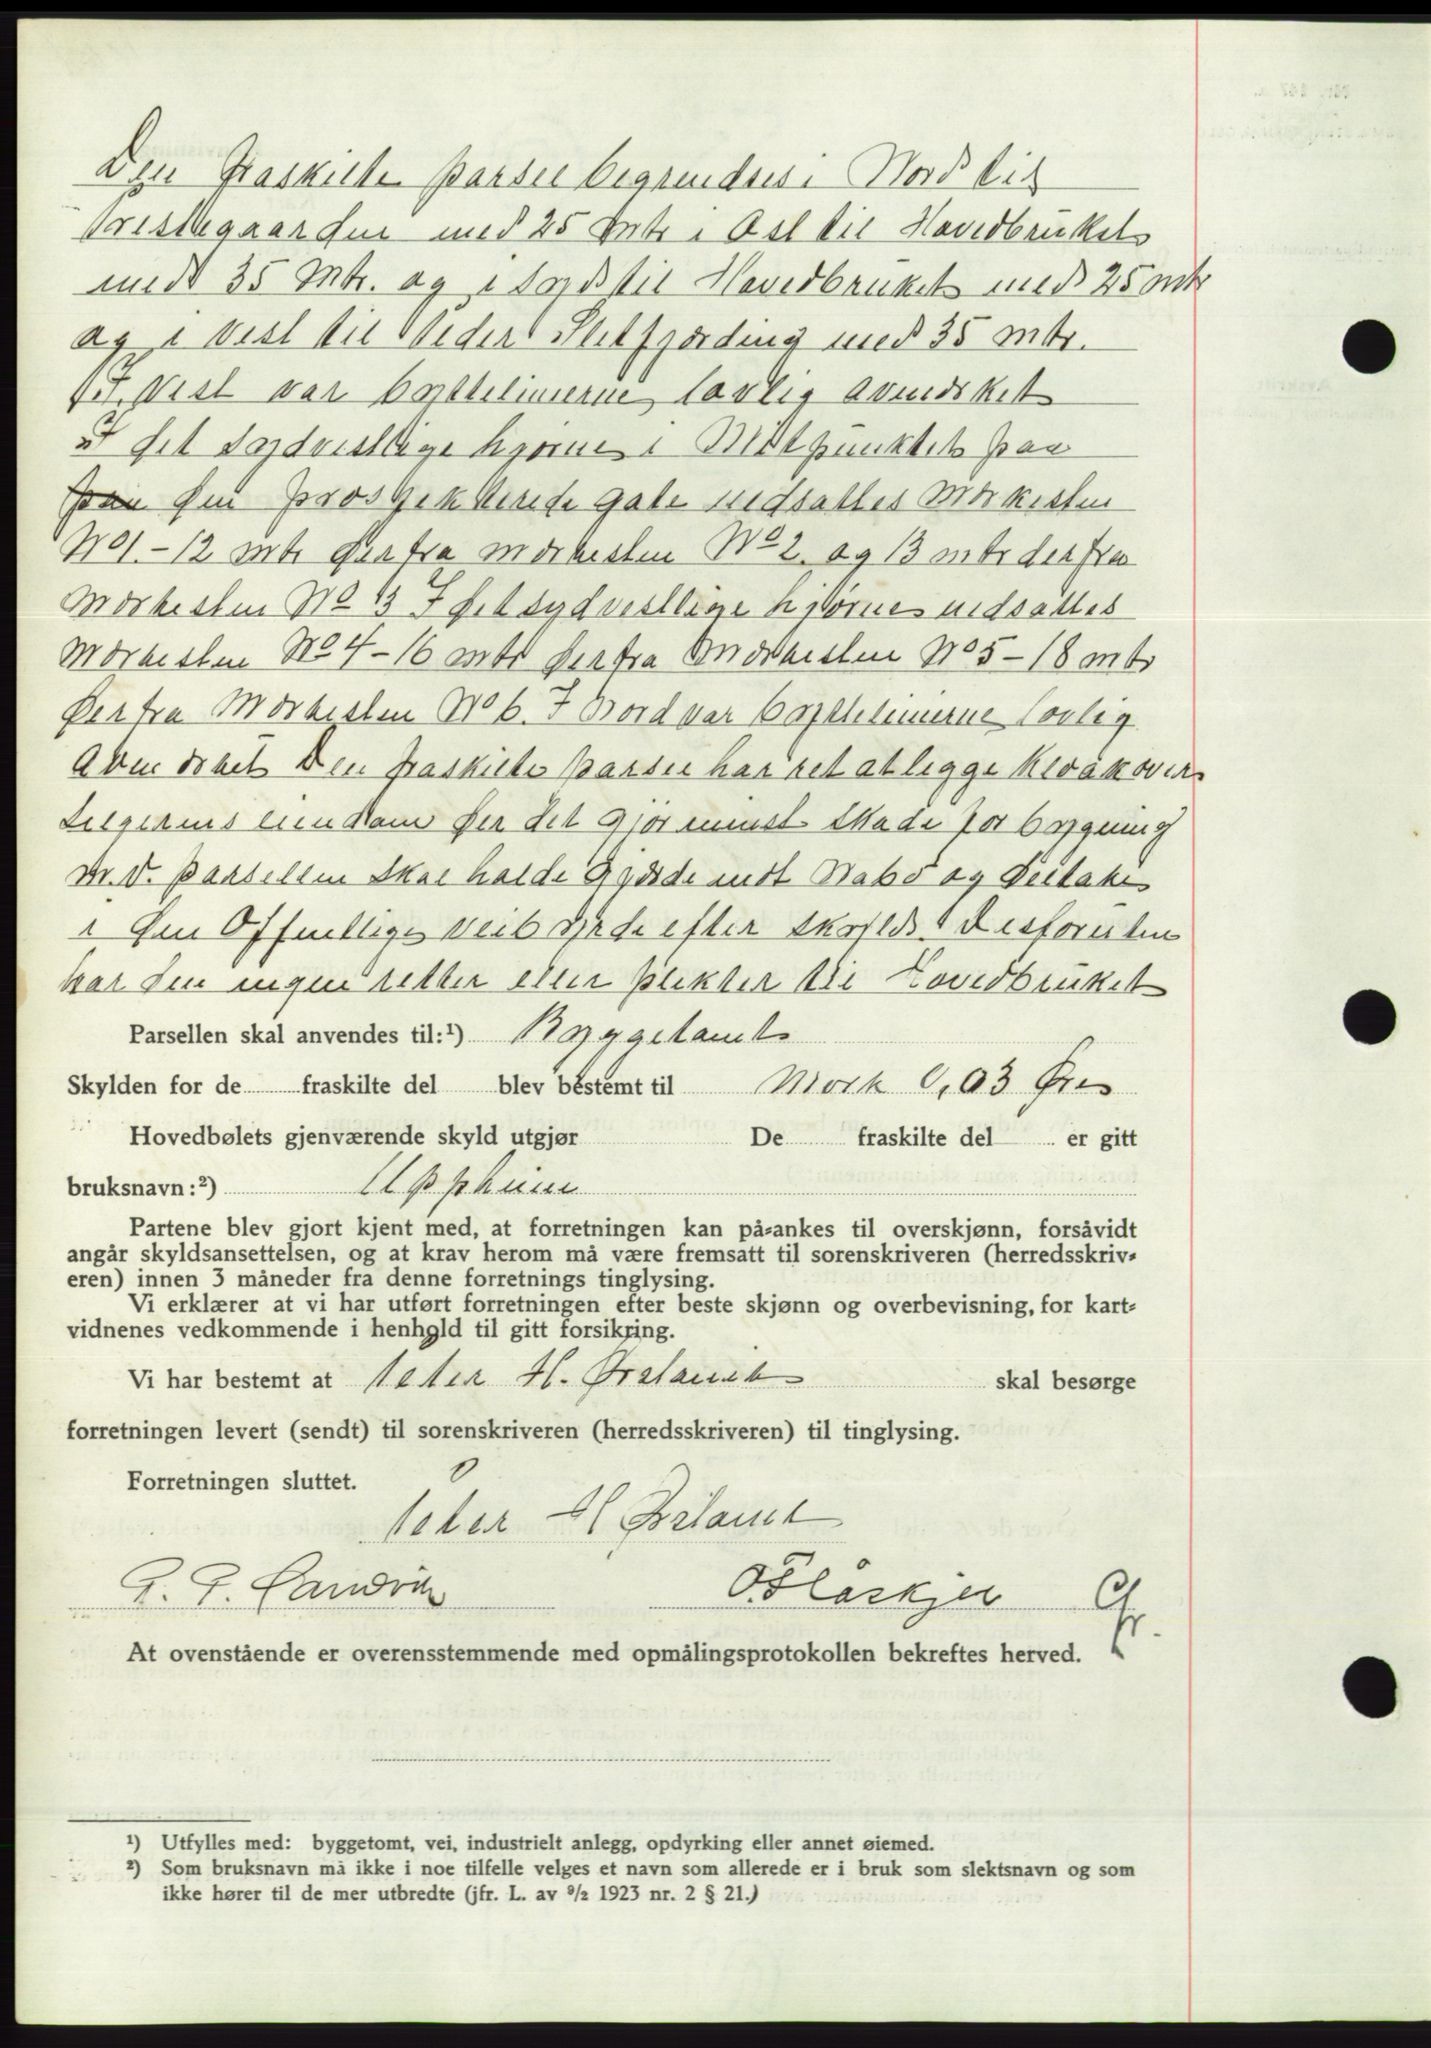 Den fraskilte parsel begrendses i Nord til
Prestegaarden med 25 mtr i Øst til Hovedbruket
med 35 Mtr. og i Syd til Hovedbruket med 25 mtr
og i Vest til Peder Sletfjording med 35 mtr.
I Vest var byttelinierne lovlig avmerket
I det sydvestlige hjørne i Mitpunktet paa
paa den prosjekterede gate nedsattes Merkesten
No 1. - 12 mtr derfra merkesten No 2. og 13 mtr derfra
merkesten No 3 I det sydvestlige hjørne nedsattes
merkesten No 4 - 16 mtr derfra merkesten No 5 - 18 mtr
derfra Merkesten No 6. I Nord var byttelinierne lovlig
avmerket Den fraskilte parsel har ret at legge kloak over
selgerens eiendom der det gjør minst skade for bygning
m.v. parsellen skal holde gjerde mot Nabo og deltake
i den Offentlige veibyrde efter skyld. Desforuten
har den ingen retter eller plikter til Hovedbruket
Parsellen skal anvendes til:¹) Byggetomt
Skylden for de fraskilte del blev bestemt til Mork 0,03 Øre
Hovedbølets gjenværende skyld utgjør De fraskilte del er gitt
bruksnavn:²) Uppheim
Partene blev gjort kjent med, at forretningen kan på-ankes til overskjønn, forsåvidt
angår skyldsansettelsen, og at krav herom må være fremsatt til sorenskriveren (herredsskriv-
eren) innen 3 måneder fra denne forretnings tinglysing.
Vi erklærer at vi har utført forretningen efter beste skjønn og overbevisning, for kart-
vidnenes vedkommende i henhold til gitt forsikring.
Vi har bestemt at Peter H. Ørslavik skal besørge
forretningen levert (sendt) til sorenskriveren (herredsskriveren) til tinglysing.
Forretningen sluttet.
Peter H
P. P. Sandvik O. Flåskjer
At ovenstående er overensstemmende med opmålingsprotokollen bekreftes herved.
¹) Utfylles med: byggetomt, vei, industrielt anlegg, opdyrking eller annet øiemed.
²) Som bruksnavn må ikke i noe tilfelle velges et navn som allerede er i bruk som slektsnavn og som
ikke hører til de mer utbredte (jfr. L. av ⁹/₂ 1923 nr. 2 § 21.)